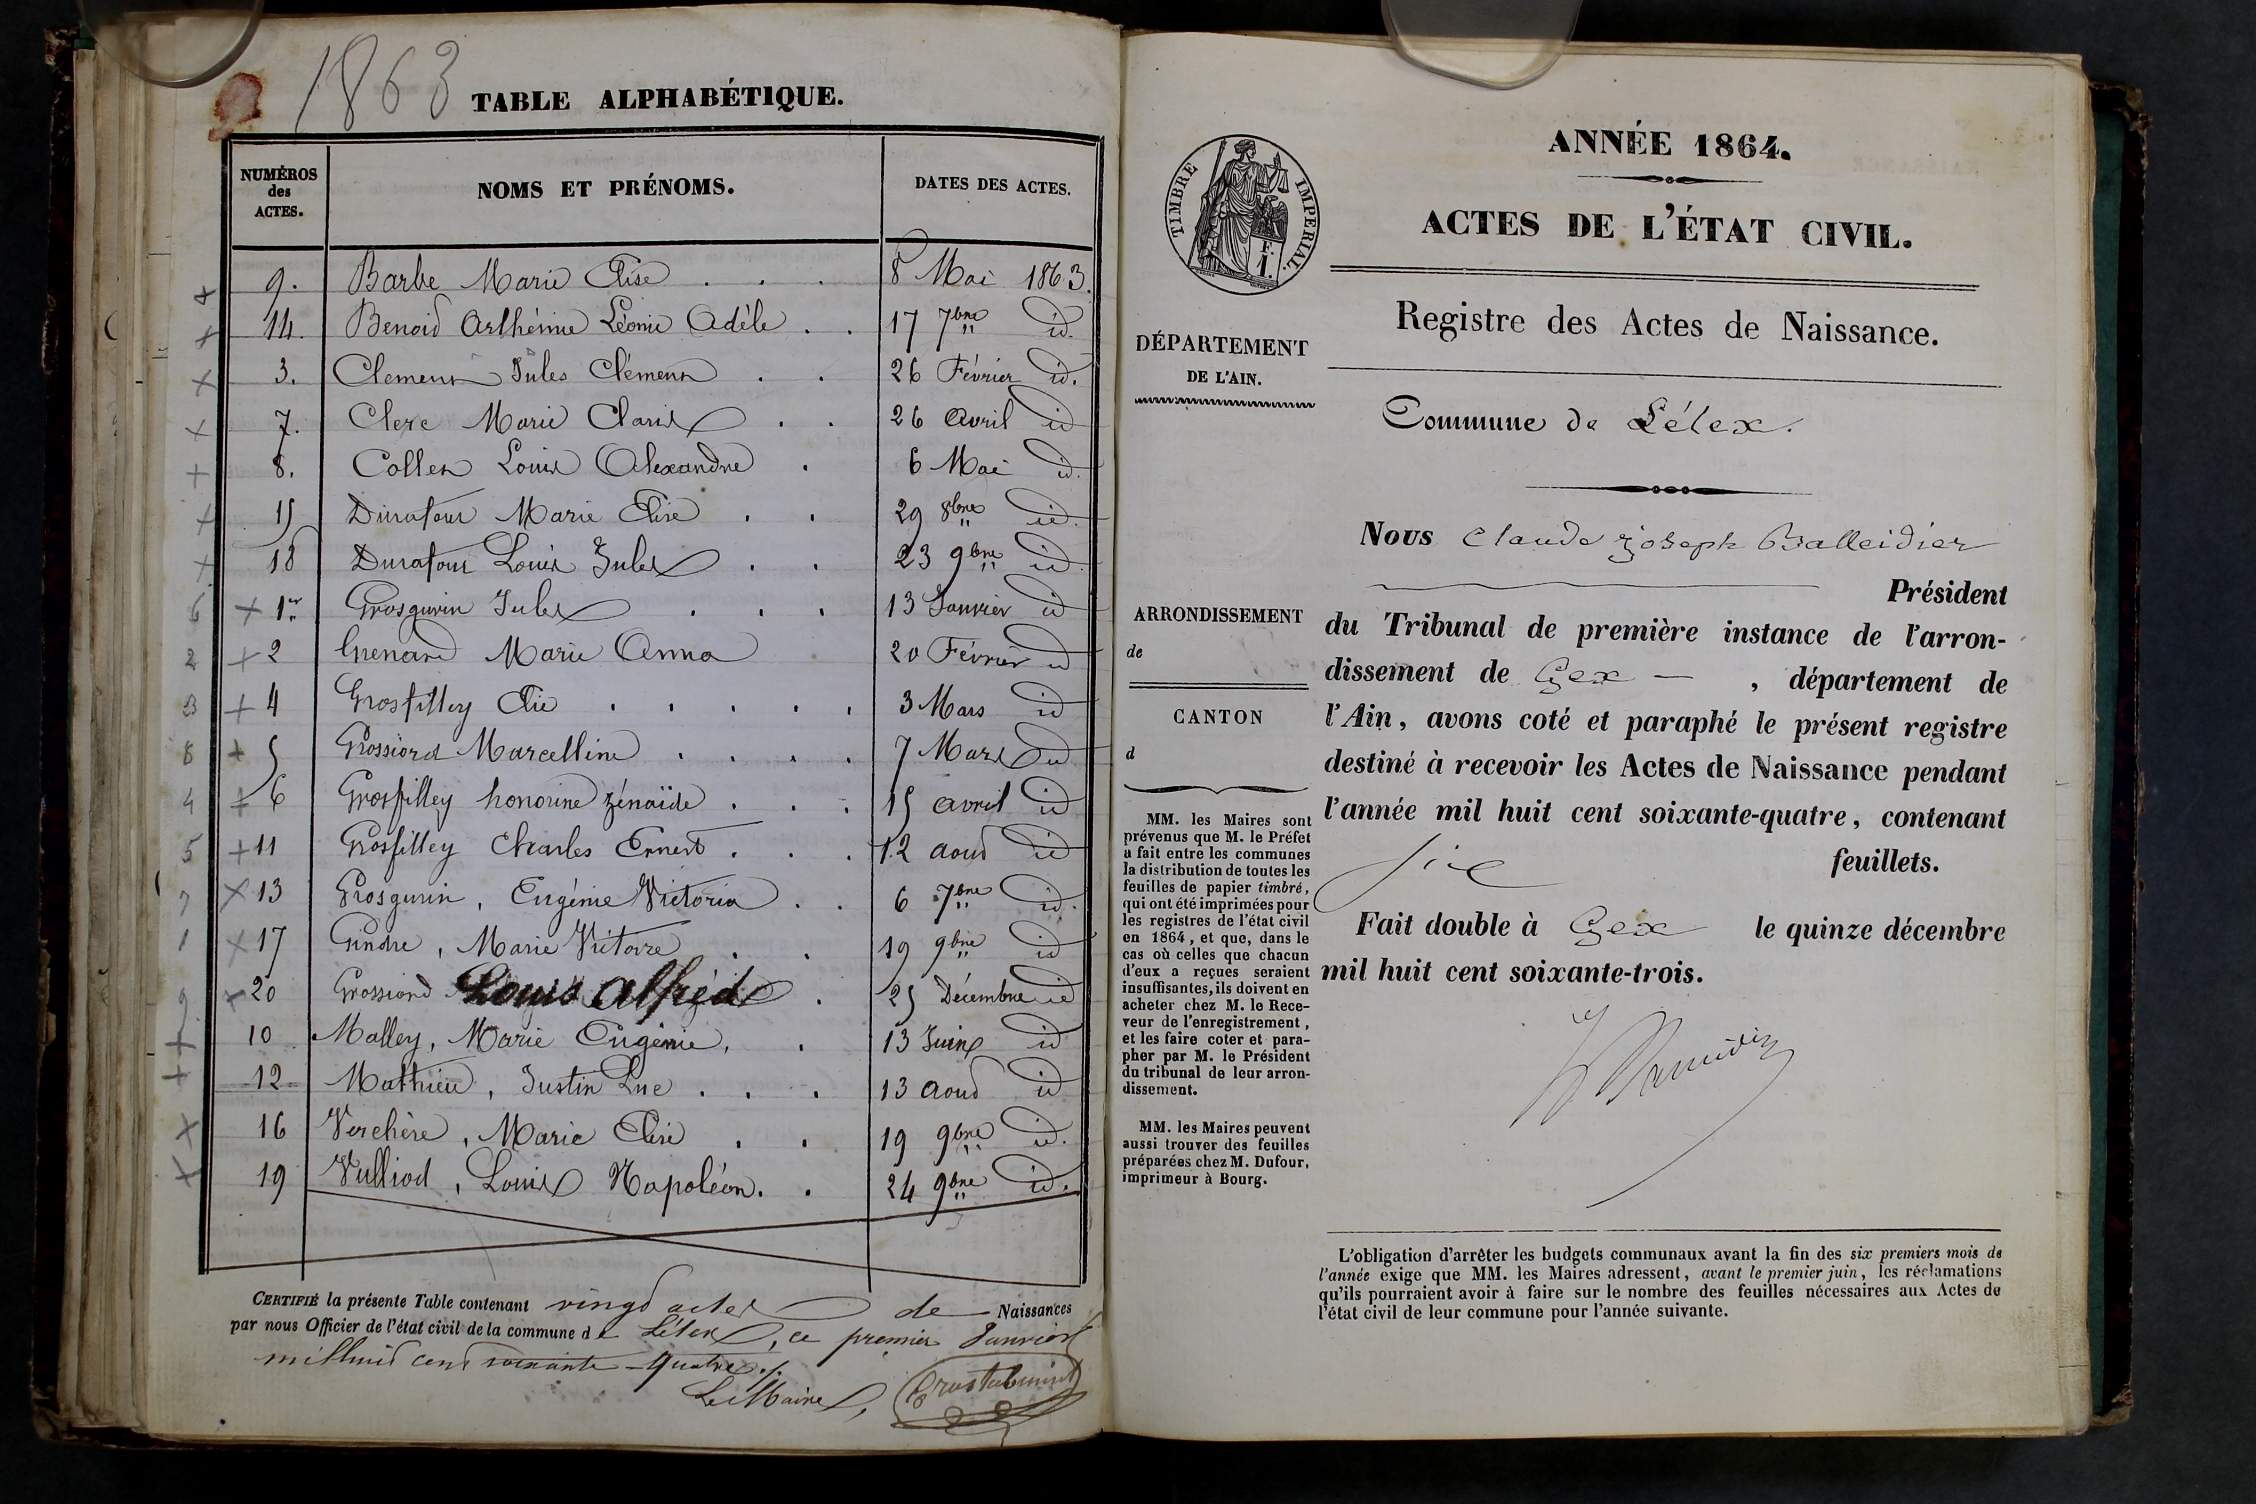 1863
TABLE ALPHABÉTIQUE.
NUMÉROS des ACTES. NOMS ET PRÉNOMS. DATES DES ACTES.
9. Barbe Marie Elise 8 Mai 1863.
14. Benoid Arthémie Léonie Adèle 17 7bre id.
3. Clement Jules Clément 26 Février id.
7. Clerc Marie Claris 26 avril id
8. Collet Louis Alexandre 6 Mai id.
15 Durafour Marie Elise 29 8bre id.
18 Durafour Louis Jules 23 9bre id.
6 1er Grosgurin Jules 13 Janvier id
2 2 Grenard Marie Anna 20 Février id
3 4 Grosfilley Elie 3 Mars id
8 5 Grossiord Marcelline 7 Mars id
4 6 Grosfilley honorine zénaïde 15 avril id
5 11 Grosfilley Charles Ernest 12 aout id
7 13 Grosgurin, Eugénie Victoria 6 7bre id.
1 17 Gindre, Marie Victoire 19 9bre id
9 20 Grossiord Louis Alfred 25 Décembre id
10 Malley, Marie Eugénie, 13 Juin id
12 Mathieu, Justin Luc 13 aout id
16 Verchère, Marie Elise 19 9bre id.
19 Vulliod, Louis Napoléon. 24 9bre id.
CERTIFIÉ la présente Table contenant vingt actes de Naissances
par nous Officier de l'état civil de la commune de Lélex, ce premier Janvier
mil huit cent soixante-quatre ./.
Le Maire,
ANNÉE 1864.
ACTES DE L'ÉTAT CIVIL.
TIMBRE IMPERIAL.
F.
1.
Registre des Actes de Naissance.
DÉPARTEMENT
DE L'AIN.
Commune de Lélex.
Nous Claude Joseph Balleidier
Président
du Tribunal de première instance de l'arron-
dissement de Gex — , département de
l'Ain, avons coté et paraphé le présent registre
destiné à recevoir les Actes de Naissance pendant
l'année mil huit cent soixante-quatre, contenant
six feuillets.
Fait double à Gex le quinze décembre
mil huit cent soixante-trois.
ARRONDISSEMENT
de
CANTON
d
MM. les Maires sont
prévenus que M. le Préfet
a fait entre les communes
la distribution de toutes les
feuilles de papier timbré,
qui ont été imprimées pour
les registres de l'état civil
en 1864, et que, dans le
cas où celles que chacun
d'eux a reçues seraient
insuffisantes, ils doivent en
acheter chez M. le Rece-
veur de l'enregistrement,
et les faire coter et para-
pher par M. le Président
du tribunal de leur arron-
dissement.
MM. les Maires peuvent
aussi trouver des feuilles
préparées chez M. Dufour,
imprimeur à Bourg.
L'obligation d'arrêter les budgets communaux avant la fin des six premiers mois de
l'année exige que MM. les Maires adressent, avant le premier juin, les réclamations
qu'ils pourraient avoir à faire sur le nombre des feuilles nécessaires aux Actes de
l'état civil de leur commune pour l'année suivante.